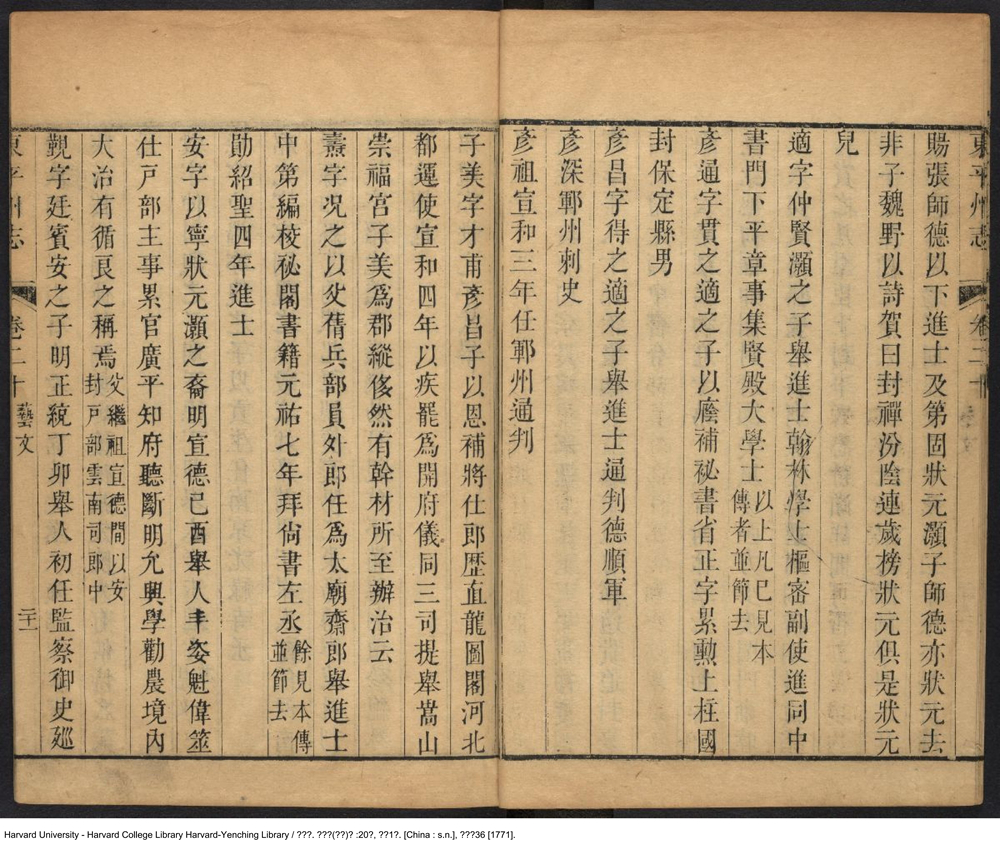 東平州志 卷二十
賜張師德以下進士及第固狀元灝子師德亦狀元去
非子魏野以詩賀曰封禪汾陰連歲榜狀元俱是狀元
兒
適字仲賢灝之子舉進士翰林學士樞密副使進同中
書門下平章事集賢殿大學士以上凡已見本傳者並節去
彥通字貫之適之子以廕補秘書省正字累勳上柱國
封保定縣男
彥昌字得之適之子舉進士通判德順軍
彥深鄆州刺史
彥祖宣和三年任鄆州通判
子美字才甫彥昌子以恩補將仕郎歷直龍圖閣河北
都運使宣和四年以疾罷爲開府儀同三司提舉嵩山
崇福宮子美爲郡縱侈然有幹材所至辦治云
燾字況之以父蒨兵部員外郎任爲太廟齋郎舉進士
中第編校秘閣書籍元祐七年拜尙書左丞餘見本傳並節去
勛紹聖四年進士
安字以寧狀元灝之裔明宣德己酉舉人丰姿魁偉筮
仕戸部主事累官廣平知府聽斷明允興學勸農境內
大治有循良之稱焉父繼祖宣德間以安封戸部雲南司郎中
觀字廷賓安之子明正統丁卯舉人初任監察御史廵
東平州志 卷二十 藝文 三十一